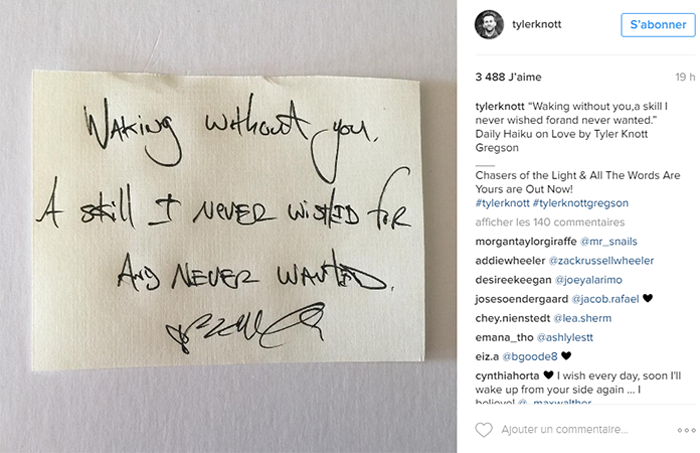 Waking without you.
A skill I never wished for
And never wanted.
tylerknott
S'abonner
3 488 J'aime
19 h
tylerknott “Waking without you,a skill I
never wished forand never wanted.”
Daily Haiku on Love by Tyler Knott
Gregson
___
Chasers of the Light & All The Words Are
Yours are Out Now!
#tylerknott #tylerknottgregson
afficher les 140 commentaires
morgantaylorgiraffe @mr_snails
addiewheeler @zackrussellwheeler
desireekeegan @joeyalarimo
josesoendergaard @jacob.rafael 🖤
chey.nienstedt @lea.sherm
emana_tho @ashlylestt
eiz.a @bgoode8 🖤
cynthiahorta 🖤 I wish every day, soon I'll
wake up from your side again ... I
believe! @_maxwalther
Ajouter un commentaire...